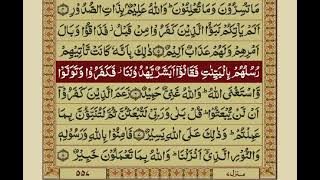 مَا تُسِرُّوْنَ وَمَا تُعْلِنُوْنَ ؕ وَاللّٰهُ عَلِيْمٌۢ بِذَاتِ الصُّدُوْرِ ۴
اَلَمْ يَاْتِكُمْ نَبَؤُا الَّذِيْنَ كَفَرُوْا مِنْ قَبْلُ ؗ فَذَاقُوْا وَبَالَ
اَمْرِهِمْ وَلَهُمْ عَذَابٌ اَلِيْمٌ ۵ ذٰلِكَ بِاَنَّهٗ كَانَتْ تَّاْتِيْهِمْ
رُسُلُهُمْ بِالْبَيِّنٰتِ فَقَالُوْۤا اَبَشَرٌ يَّهْدُوْنَنَا ؗ فَكَفَرُوْا وَتَوَلَّوْا
وَّاسْتَغْنَى اللّٰهُ ؕ وَاللّٰهُ غَنِيٌّ حَمِيْدٌ ۶ زَعَمَ الَّذِيْنَ كَفَرُوْۤا
اَنْ لَّنْ يُّبْعَثُوْا ؕ قُلْ بَلٰى وَرَبِّيْ لَتُبْعَثُنَّ ثُمَّ لَتُنَبَّؤُنَّ بِمَا
عَمِلْتُمْ ؕ وَذٰلِكَ عَلَى اللّٰهِ يَسِيْرٌ ۷ فَاٰمِنُوْا بِاللّٰهِ وَرَسُوْلِهٖ
وَالنُّوْرِ الَّذِيْۤ اَنْزَلْنَا ؕ وَاللّٰهُ بِمَا تَعْمَلُوْنَ خَبِيْرٌ ۸
منزل ۷ ۵۵۷